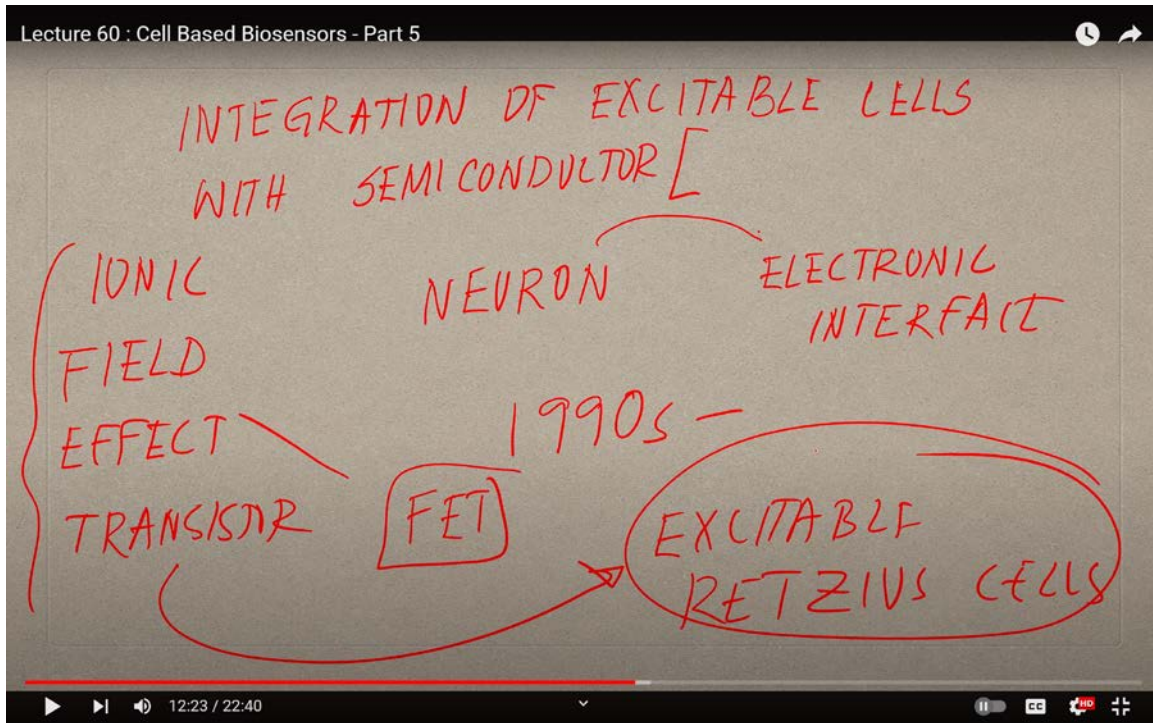 Lecture 60 : Cell Based Biosensors - Part 5
INTEGRATION OF EXCITABLE CELLS
WITH SEMICONDUCTOR [
IONIC
FIELD
EFFECT
TRANSISTOR
NEURON
ELECTRONIC
INTERFACE
1990s -
FET
EXCITABLE
RETZIUS CELLS
12:23 / 22:40
CC
HD